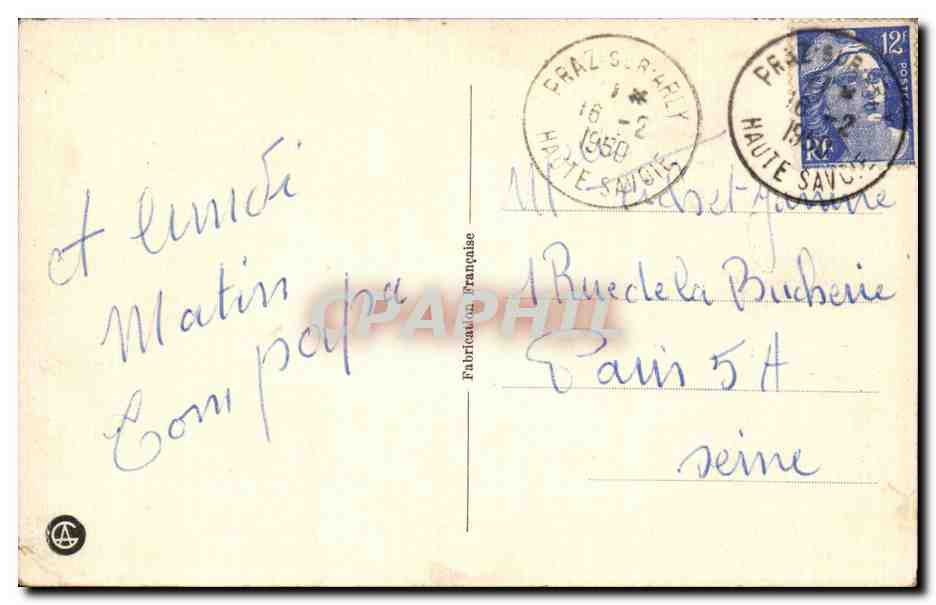 A lundi
Matin
Tom papa
Fabrication Française
PRAZ-SUR-ARLY
16 -2
1950
HAUTE SAVOIE
PRAZ-SUR-ARLY
16 -2
1950
HAUTE SAVOIE
12F
POSTES
RF
et Janine
1 Rue de la Bucherie
Paris 5A
Seine
CPAPHIL